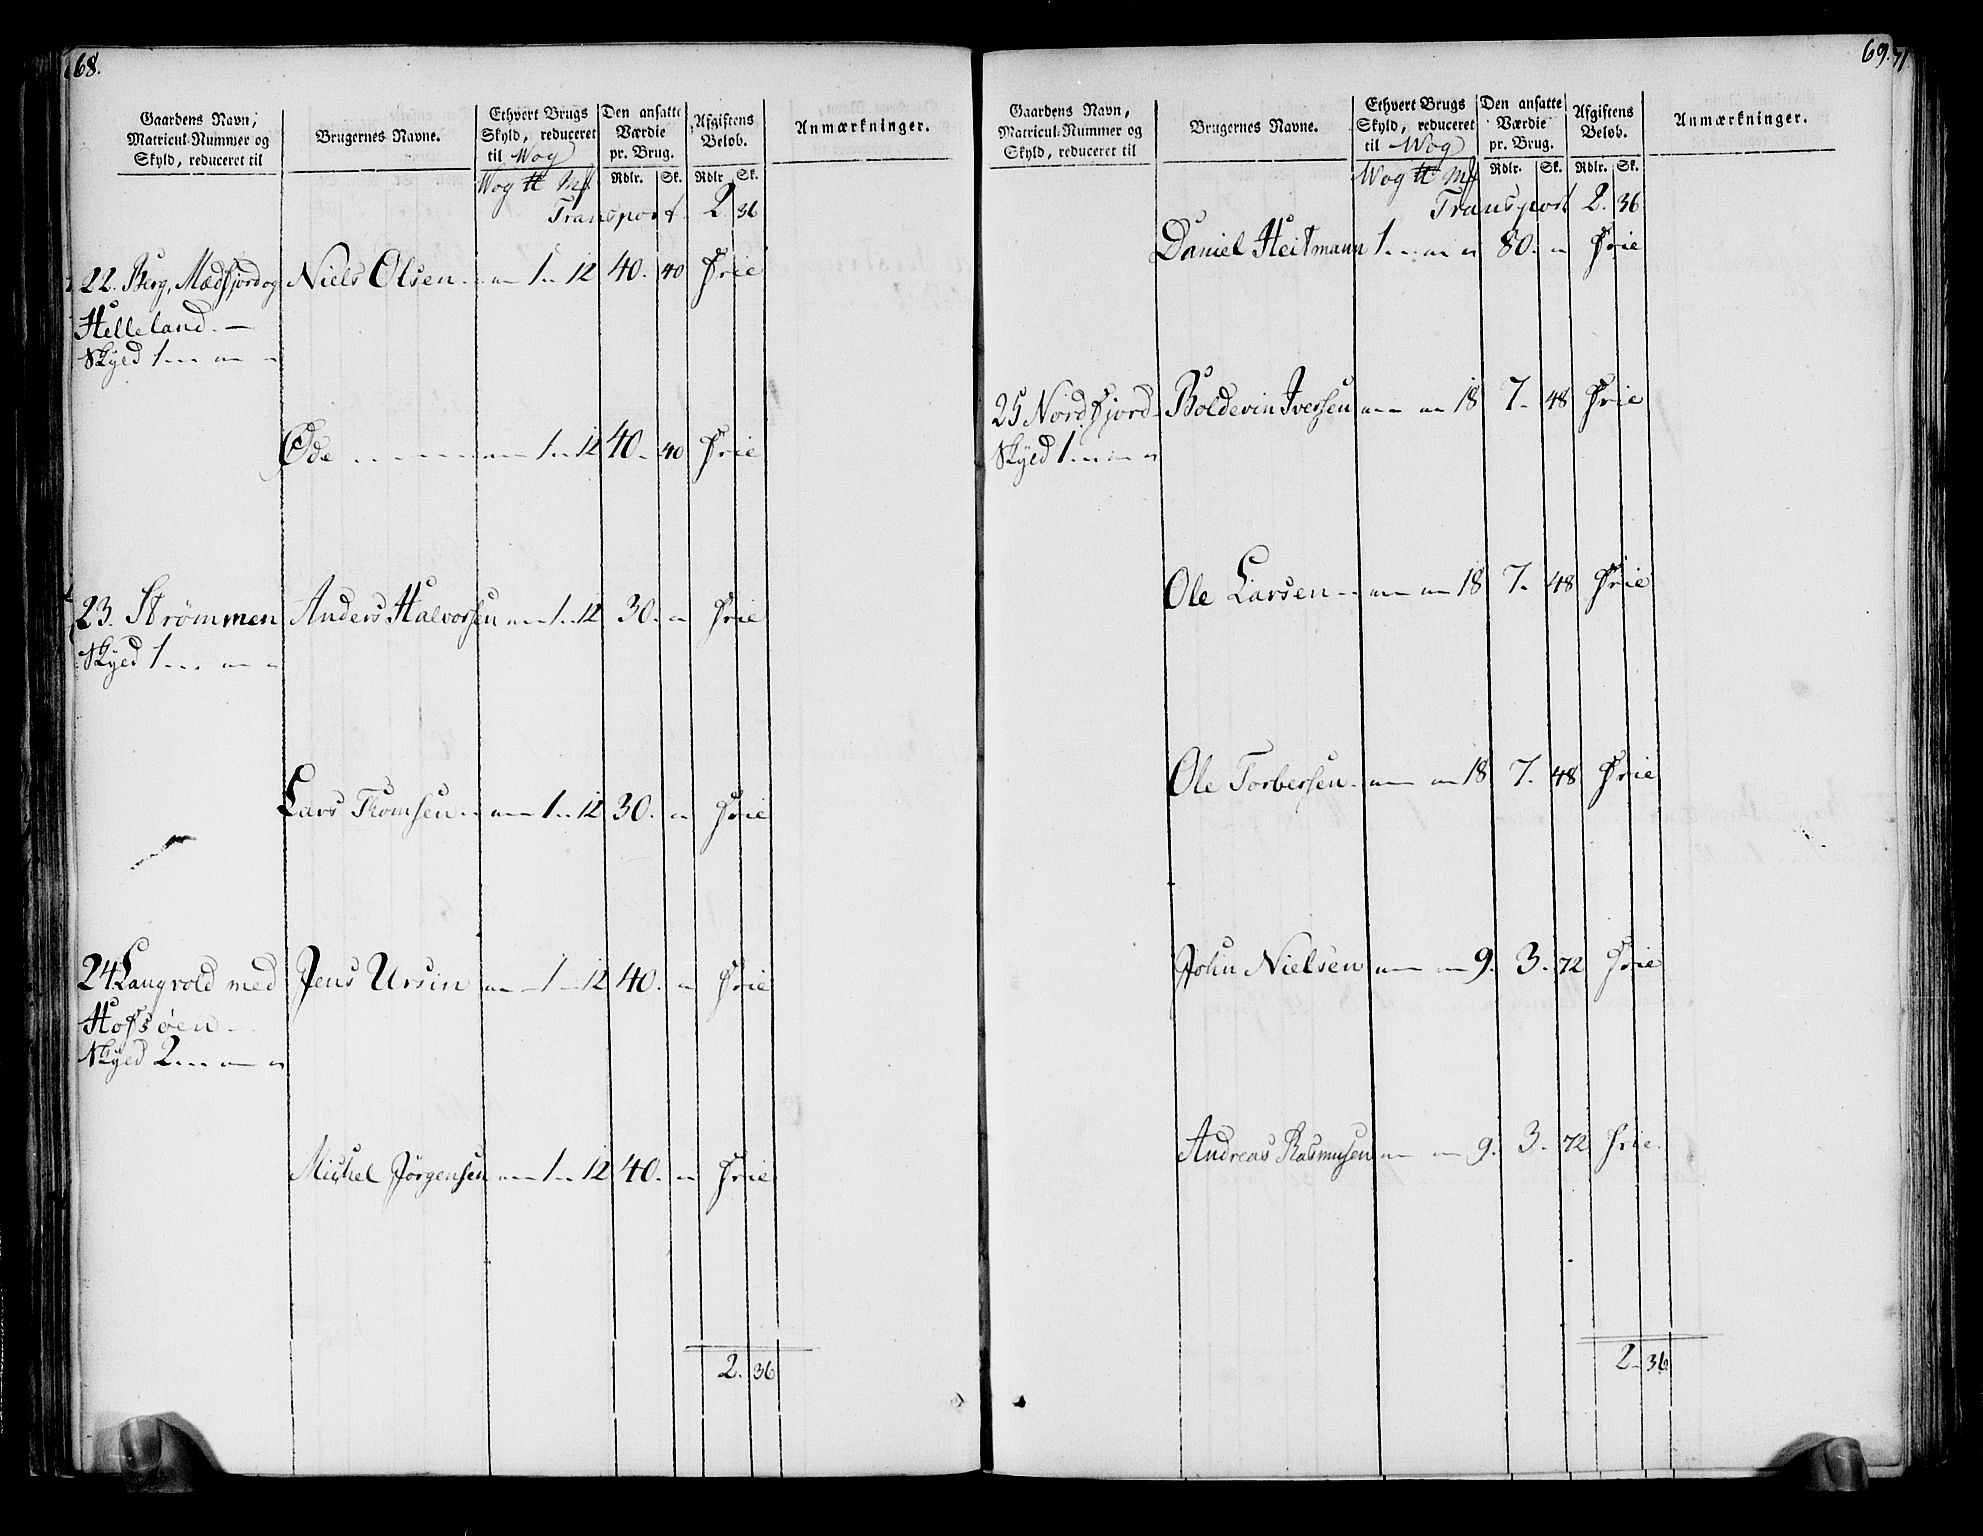 68.
Gaardens Navn, Matricul-Nummer og Skyld, reduceret til
Brugernes Navne.
Ethvert Brugs Skyld, reduceret til Wog
Den ansatte Værdie pr. Brug.
Afgiftens Beløb.
Anmærkninger.
Wog ℔ Mk Rdlr. Sk. Rdlr Sk.
Transport. 2. 36
22. Berg, Mædfjord og Niels Olsen. - „ - 1 - 12 40. 40 Frie
Helleland. -
Skyld 1 - „ - „
Øde - - - - „ - 1 - 12 40. 40 Frie
23. Strømmen Anders Halvorsen „ - 1 - 12 30. „ Frie
Skyld 1 - „ - „
Lars Thomsen - „ - 1 - 12 30. „ Frie
24 Langvold med Jens Ursin „ - 1 - 12 40. „ Frie
Hofsøen -
Skyld 2 - „ - „
Michel Jørgensen „ - 1 - 12 40. „ Frie
2. 36
69. 71
Gaardens Navn, Matricul-Nummer og Skyld, reduceret til
Brugernes Navne.
Ethvert Brugs Skyld, reduceret til Wog
Den ansatte Værdie pr. Brug.
Afgiftens Beløb.
Anmærkninger.
Wog ℔ Mk Rdlr. Sk. Rdlr. Sk.
Transport 2. 36
Daniel Heitmann 1 - „ - „ 80. „ Frie
25 Nordfjord Boldevin Iversen „ - „ 18 7. 48 Frie
Skyld 1 - „ - „
Ole Larsen - „ - „ 18 7. 48 Frie
Ole Torbersen. „ - „ 18 7. 48 Frie
John Nielsen „ - „ 9. 3. 72 Frie
Andreas Rasmusen „ - „ 9. 3. 72 Frie.
2. 36